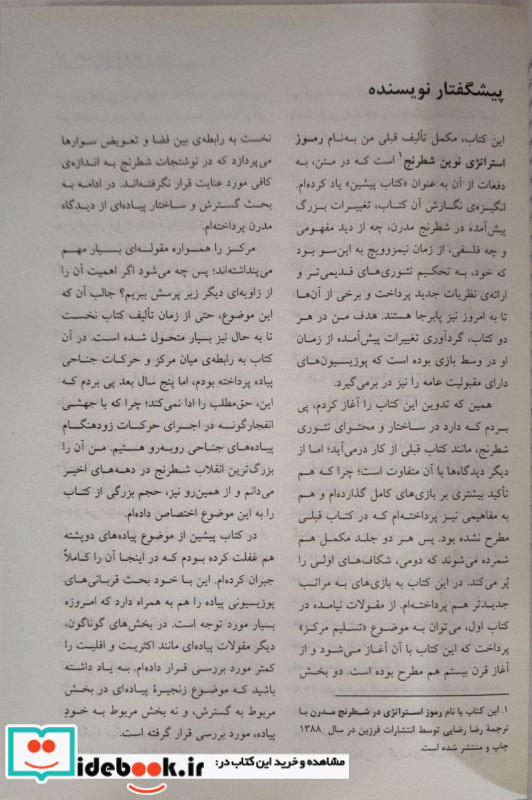 پیشگفتار نویسنده
این کتاب، مکمل تألیف قبلی من به‌نام رموز
استراتژی نوین شطرنج۱ است که در متن، به
دفعات از آن به عنوان «کتاب پیشین» یاد کرده‌ام.
انگیزه‌ی نگارش آن کتاب، تغییرات بزرگ
پیش‌آمده در شطرنج مدرن، چه از دید مفهومی
و چه فلسفی، از زمان نیمزوویچ به این‌سو بود
که خود، به تحکیم تئوری‌های قدیمی‌تر و
ارائه‌ی نظریات جدید پرداخت و برخی از آن‌ها
تا به امروز نیز پابرجا هستند. هدف من در هر
دو کتاب، گردآوری تغییرات پیش‌آمده از زمان
او در وسط بازی بوده است که پوزیسیون‌های
دارای مقبولیت عامه را نیز در برمی‌گیرد.
همین که تدوین این کتاب را آغاز کردم، پی
بردم که دارد در ساختار و محتوای تئوری
شطرنج، مانند کتاب قبلی از کار درمی‌آید؛ اما از
دیگر دیدگاه‌ها با آن متفاوت است؛ چرا که هم
تأکید بیشتری بر بازی‌های کامل گذارده‌ام و هم
به مفاهیمی نیز پرداخته‌ام که در کتاب قبلی
مطرح نشده بود. پس هر دو جلد مکمل هم
شمرده می‌شوند که دومی، شکاف‌های اولی را
پُر می‌کند. در این کتاب به بازی‌های به مراتب
جدیدتر هم پرداخته‌ام. از مقولات نیامده در
کتاب اول، می‌توان به موضوع «تسلیم مرکز»
پرداخت که این کتاب با آن آغاز می‌شود و از
آغاز قرن بیستم هم مطرح بوده است. دو بخش
۱. این کتاب با نام رموز استراتژی در شطرنج مدرن با
ترجمهٔ رضا رضایی توسط انتشارات فرزین در سال ۱۳۸۸
چاپ و منتشر شده است.
نخست به رابطه‌ی بین فضا و تعویض سوارها
می‌پردازد که در نوشتجات شطرنج به اندازه‌ی
کافی مورد عنایت قرار نگرفته‌اند. در ادامه به
بحث گسترش و ساختار پیاده‌ای از دیدگاه
مدرن پرداخته‌ام.
مرکز را همواره مقوله‌ای بسیار مهم
می‌پنداشته‌اند؛ پس چه می‌شود اگر اهمیت آن را
از زاویه‌ای دیگر زیر پرسش ببریم؟ جالب آن که
این موضوع، حتی از زمان تألیف کتاب نخست
تا به حال نیز بسیار متحول شده است. در آن
کتاب به رابطه‌ی میان مرکز و حرکات جناحی
پیاده پرداخته بودم، اما پنج سال بعد پی بردم که
این، حق‌مطلب را ادا نمی‌کند؛ چرا که با جهشی
انفجارگونه در اجرای حرکات زودهنگام
پیاده‌های جناحی روبه‌رو هستیم. من آن را
بزرگ‌ترین انقلاب شطرنج در دهه‌های اخیر
می‌دانم و از همین‌رو نیز، حجم بزرگی از کتاب
را به این موضوع اختصاص داده‌ام.
در کتاب پیشین از موضوع پیاده‌های دوپشته
هم غفلت کرده بودم که در اینجا آن را کاملاً
جبران کرده‌ام. این با خود بحث قربانی‌های
پوزیسیونی پیاده را هم به همراه دارد که امروزه
بسیار مورد توجه است. در بخش‌های گوناگون،
دیگر مقولات پیاده‌ای مانند اکثریت و اقلیت را
کمتر مورد بررسی قرار داده‌ام. به یاد داشته
باشید که موضوع زنجیرهٔ پیاده‌ای در بخش
مربوط به گسترش، و نه بخش مربوط به خودِ
پیاده، مورد بررسی قرار گرفته است.
مشاهده و خرید این کتاب در:
iidebook.ir